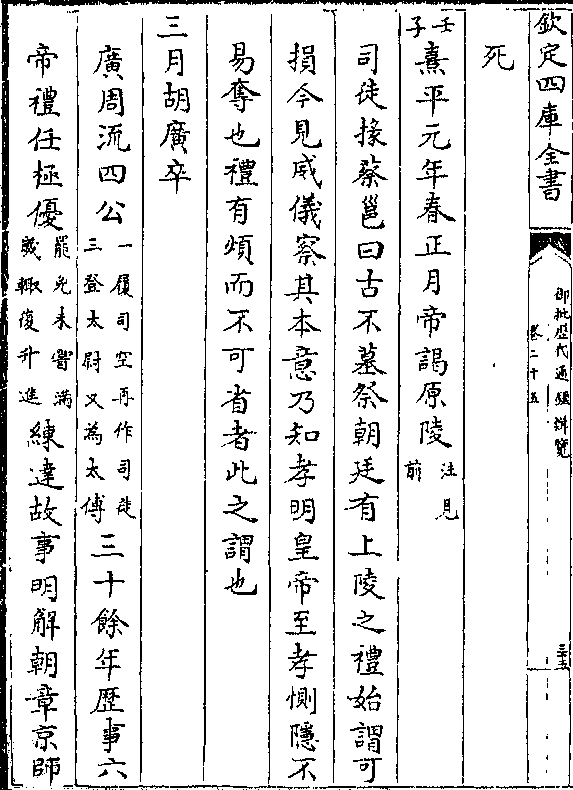 欽定四庫全書
御批歷代通鑑輯覽
卷二十五
三五
死
壬子熹平元年春正月帝謁原陵注見前
司徒掾蔡邕曰古不墓祭朝廷有上陵之禮始謂可
損今見威儀察其本意乃知孝明皇帝至孝惻隱不
易奪也禮有煩而不可省者此之謂也
三月胡廣卒
廣周流四公一履司空再作司徒三登太尉又為太傅三十餘年歷事六
帝禮任極優罷免未嘗滿歲輒復升進練達故事明解朝章京師